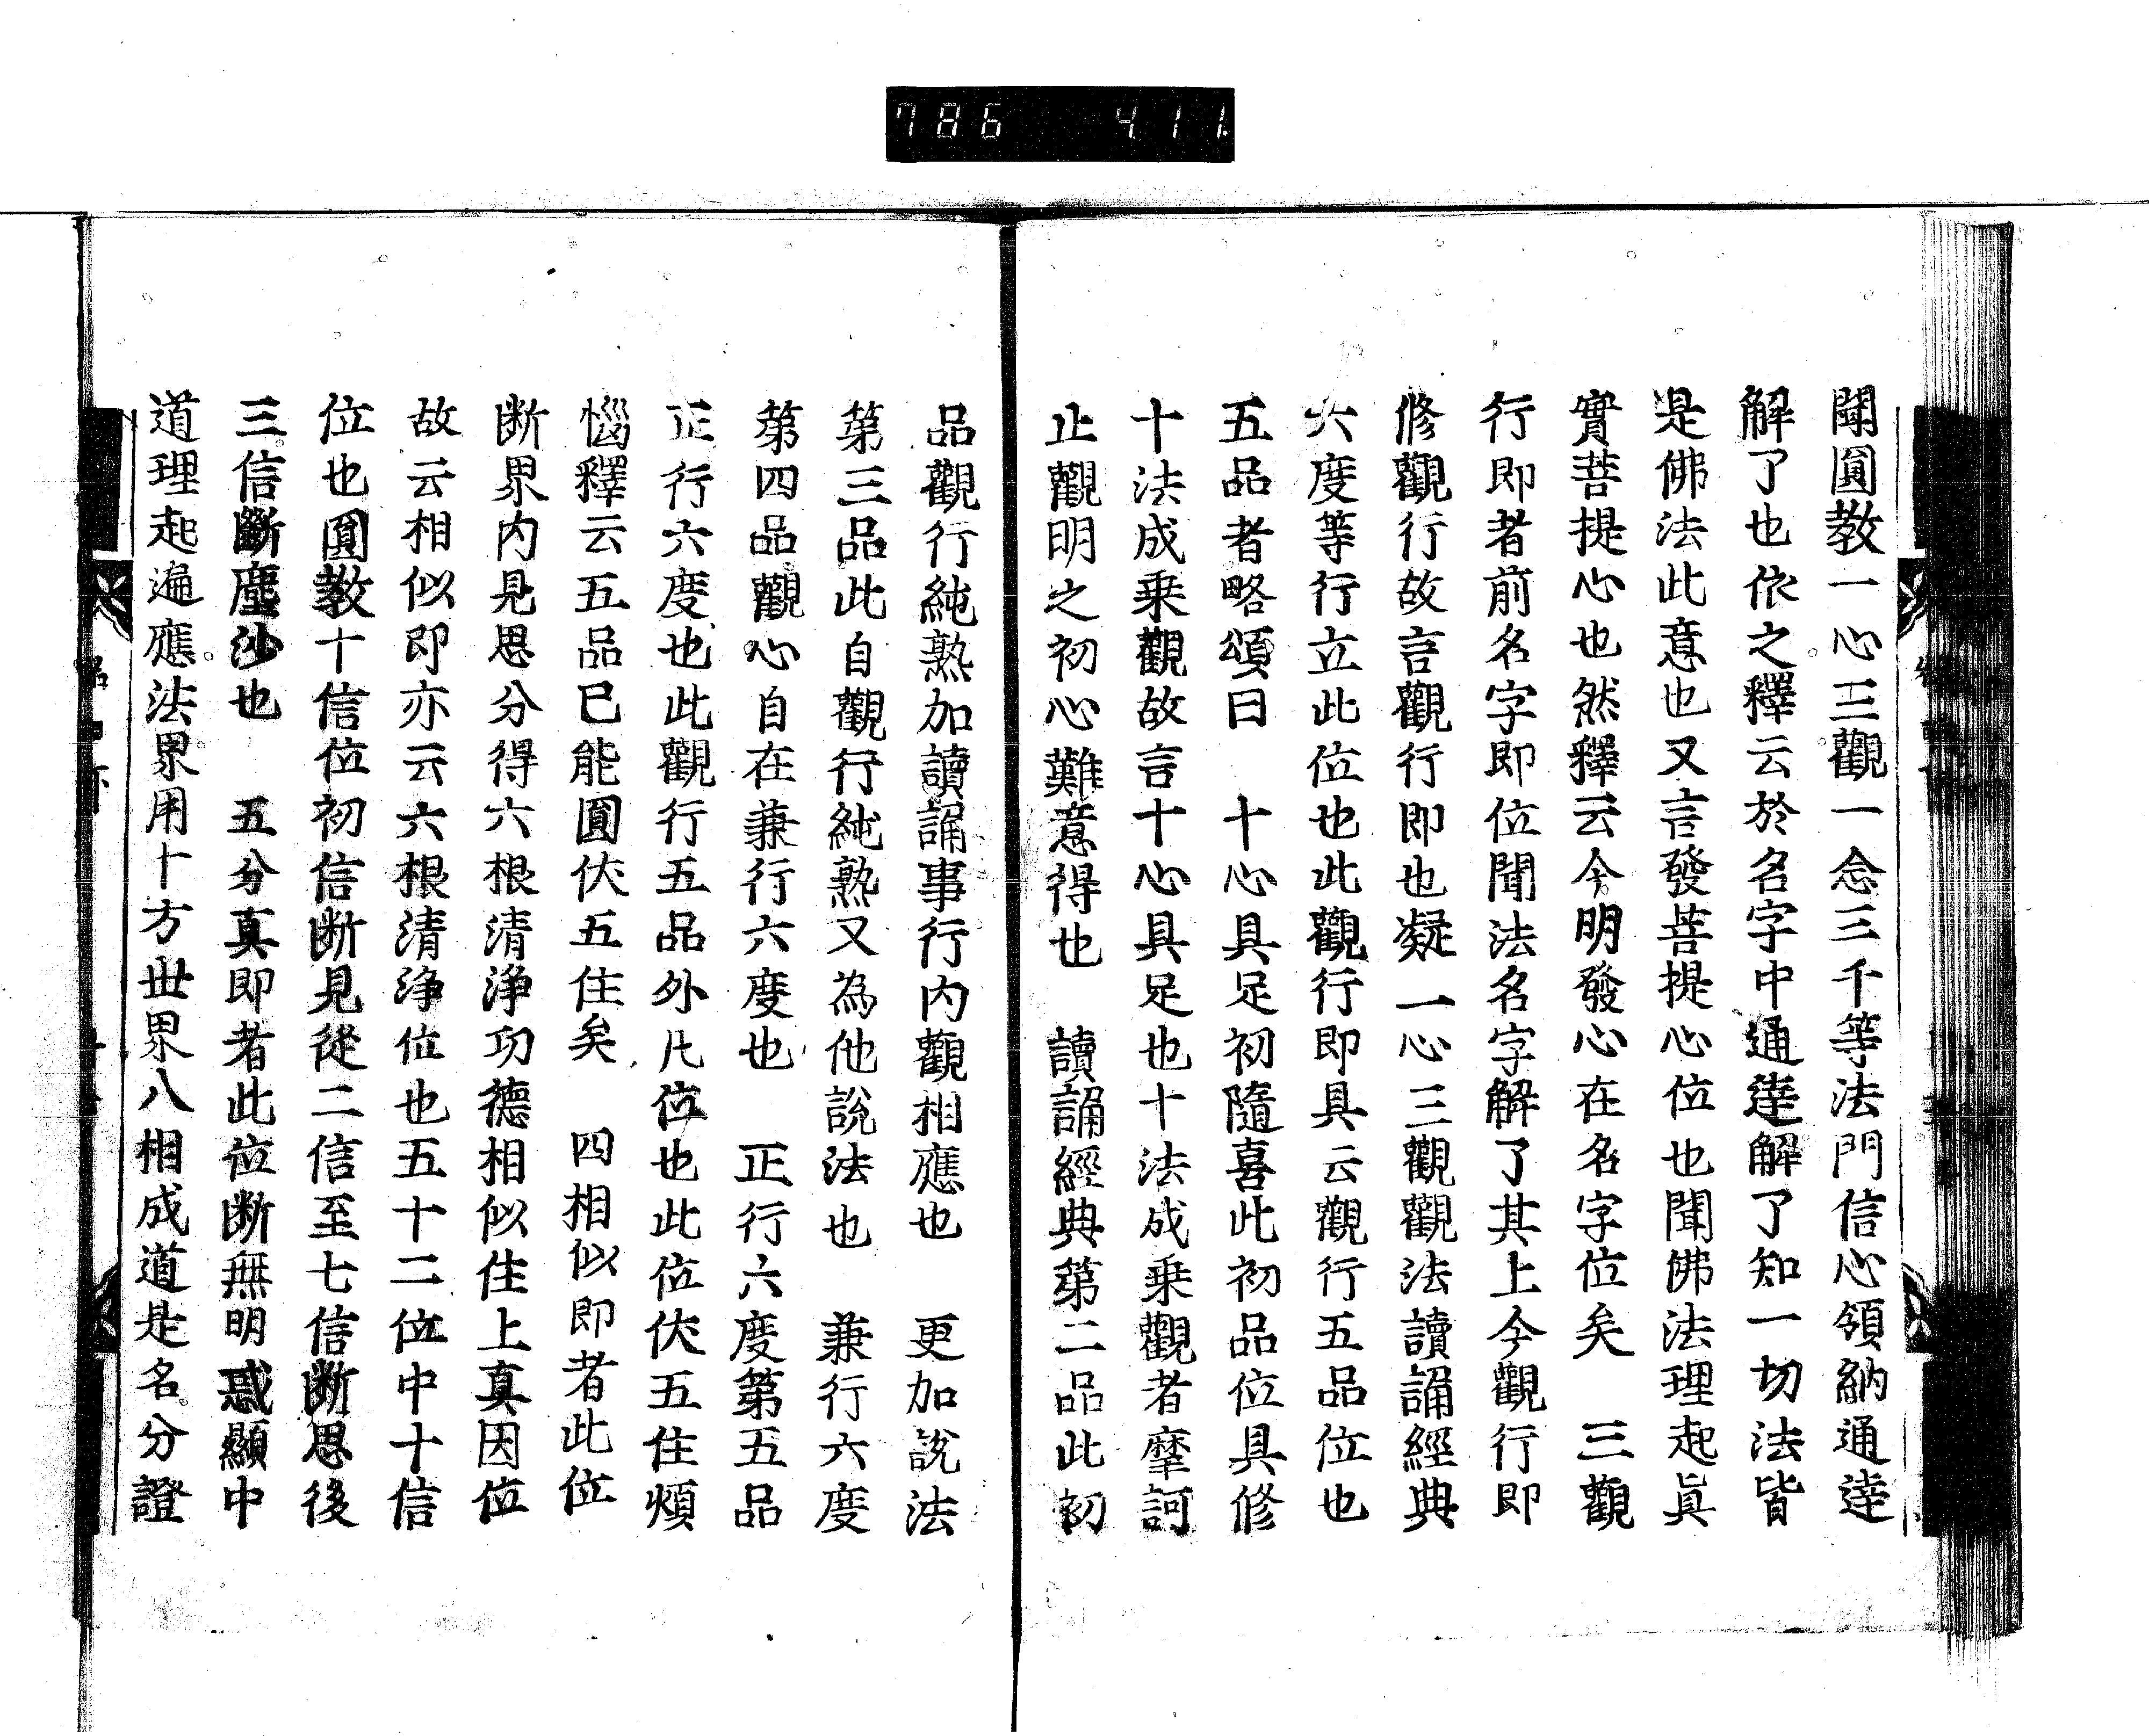 786 411
聞圓教一心三觀一念三千等法門信心領納通達
解了也依之釋云於名字中通達解了知一切法皆
是佛法此意也又言發菩提心位也聞佛法理起眞
實菩提心也然釋云今明發心在名字位矣　三觀
行即者前名字即位聞法名字解了其上今觀行即
修觀行故言觀行即也凝一心三觀觀法讀誦經典
六度等行立此位也此觀行即具云觀行五品位也
五品者略頌曰　十心具足初隨喜此初品位具修
十法成乗觀故言十心具足也十法成乗觀者摩訶
止觀明之初心難意得也　讀誦經典第二品此初
品觀行純熟加讀誦事行内觀相應也　更加說法
第三品此自觀行純熟又為他說法也　兼行六度
第四品觀心自在兼行六度也　正行六度第五品
正行六度也此觀行五品外凡位也此位伏五住煩
惱釋云五品已能圓伏五住矣　四相似即者此位
断界内見思分得六根清浄功德相似住上真因位
故云相似即亦云六根清浄位也五十二位中十信
位也圓教十信位初信断見從二信至七信断思後
三信斷塵沙也　五分真即者此位断無明惑顯中
道理起遍應法界用十方丗界八相成道是名分證